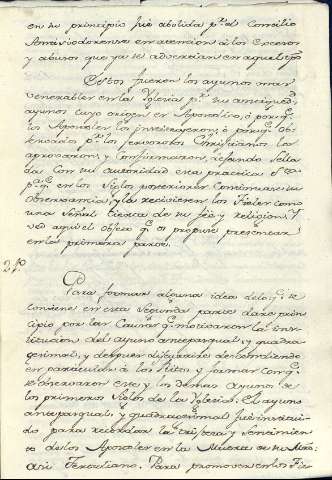 en su principio fué abolida pr. el Concilio
en atencion á los excesos
y abusos que ya se advertian en aquel tpo
Estos fueron los ayunos mas
venerables en la Yglesia pr. su antigued.
ayunos cuyo origen es Apostolico, ó porq.
los Apostoles los instituyeron, ó porq. ob-
servados pr. los fervorosos Cristianos los
aprovaron, y confirmaron, dejando sella
da con su autoridad esta practica
pa. q. en los siglos posteriores continuase su
observancia, y la recibiesen los Fieles como
una señal cierta de su fé y religion. Y
vé aqui el objeto q. os propuse presentar
en la primera parte.
2.
Para formar alguna idea delo q. se
contiene en esta Segunda parte daré prin-
cipio por las Causas q. motivaron la ins-
titucion del ayuno antepasqual, y quadra-
gesimal, y despues diré descendiendo
en particular á los Ritos y formas con q.
se observaron este, y los demas ayunos de
los primeros siglos de la Yglesia. El ayuno
antepasqual, y quadragesimal fué institui-
do para recordar la tristeza y sentimien-
to de los Apostoles en la Muerte de su Mtro.
asi Tertuliano. Para promover en los Fie-